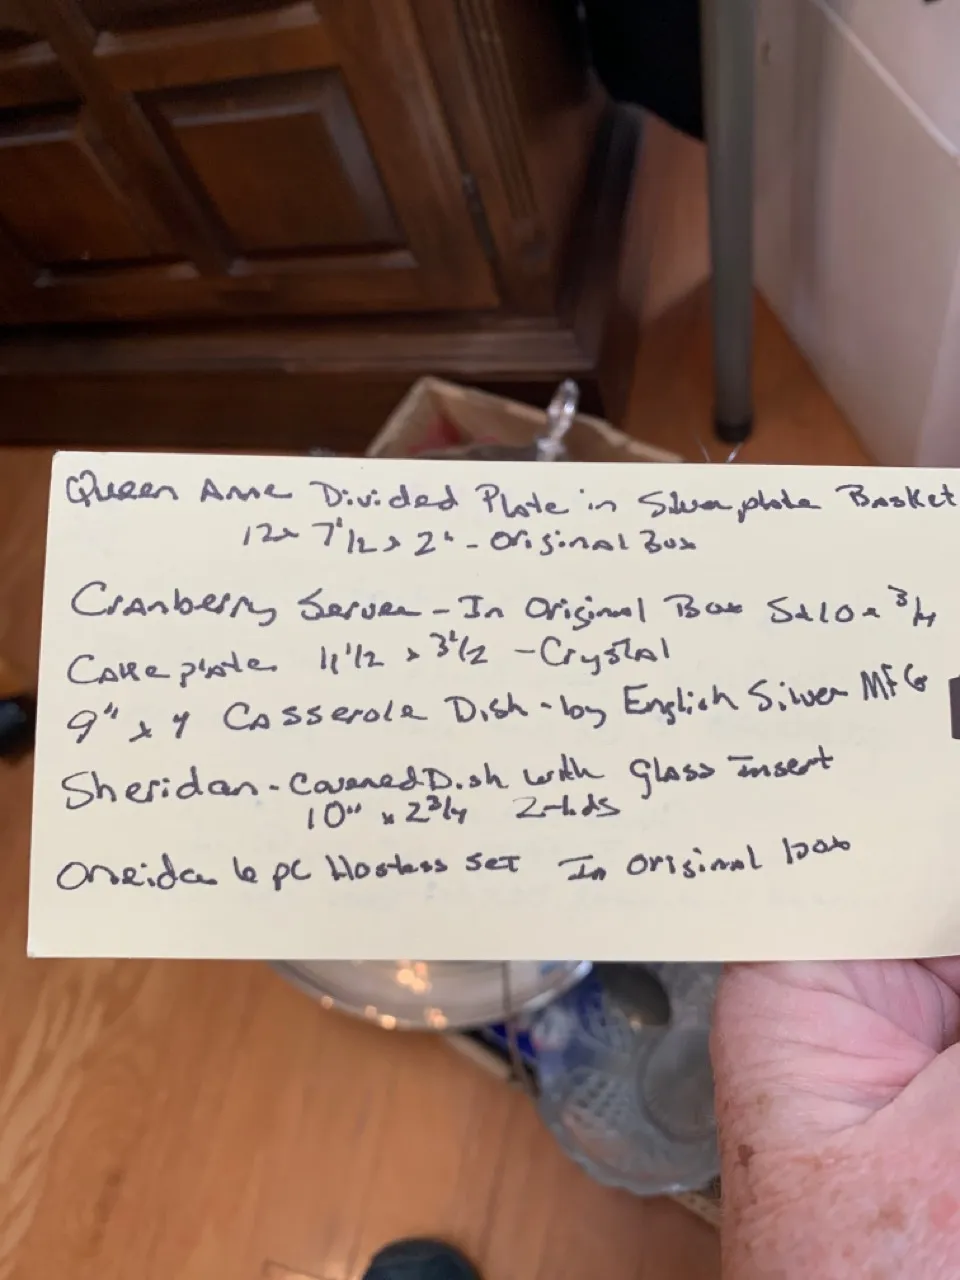 Queen Anne Divided Plate in Silverplate Basket
12 x 7 1/2 x 2" - Original Box
Cranberry Server - In Original Box 5 x 10 x 3/4
Cake plate 11 1/2 x 3 1/2 - Crystal
9" x 4 Casserole Dish - by English Silver MFG
Sheridan - Covered Dish with glass insert
10" x 2 3/4 2-lids
Oneida 6 pc Hostess set In original box